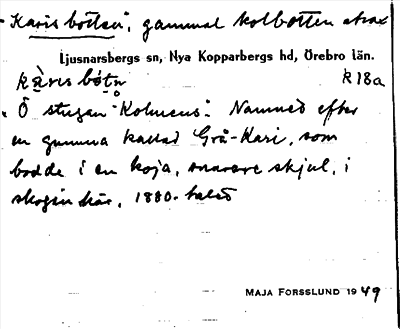 "Karis botten", gammal kolbotten strax
Ljusnarsbergs sn, Nya Kopparbergs hd, Örebro län.
kàris bótn k18a
Ö stugan "Kolmens". Namned efter
en gumma kallad Grå-Kari, som
bodde i en koja, snarare skjul, i
skogen här, 1880-talet
MAJA FORSSLUND 1949